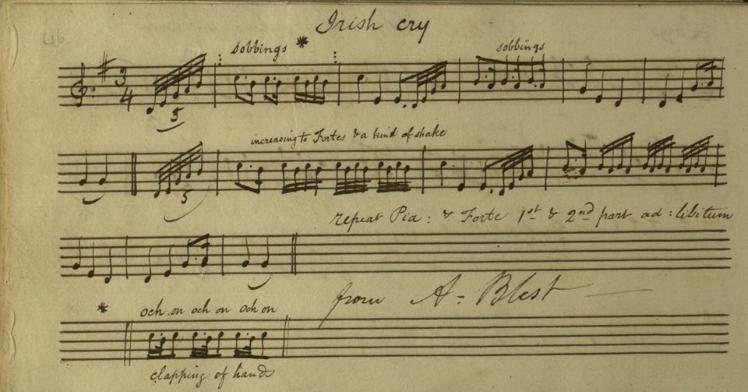 46
Irish cry
sobbings * sobbings
3
4
5
increasing to Fortes & a kind of shake
5
repeat Pia: & Forte 1st & 2nd part ad: libitum
from A= Blest
* och on och on och on
clapping of hands